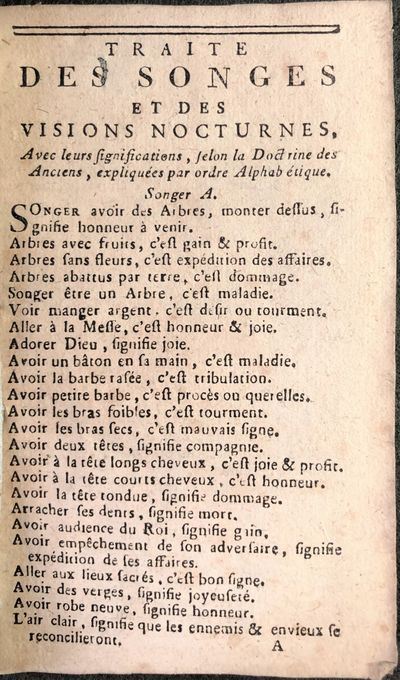 TRAITE
DES SONGES
ET DES
VISIONS NOCTURNES,
Avec leurs ſignifications, ſelon la Doctrine des
Anciens, expliquées par ordre Alphabétique.
Songer A.
SONGER avoir des Arbres, monter deſſus, ſi-
gnifie honneur à venir.
Arbres avec fruits, c'eſt gain & profit.
Arbres ſans fleurs, c'eſt expédition des affaires.
Arbres abattus par terre, c'eſt dommage.
Songer être un Arbre, c'eſt maladie.
Voir manger argent, c'eſt deſir ou tourment.
Aller à la Meſſe, c'eſt honneur & joie.
Adorer Dieu, ſignifie joie.
Avoir un bâton en ſa main, c'eſt maladie.
Avoir la barbe raſée, c'eſt tribulation.
Avoir petite barbe, c'eſt procès ou querelles.
Avoir les bras foibles, c'eſt tourment.
Avoir les bras ſecs, c'eſt mauvais ſigne.
Avoir deux têtes, ſignifie compagnie.
Avoir à la tête longs cheveux, c'eſt joie & profit.
Avoir à la tête courts cheveux, c'eſt honneur.
Avoir la tête tondue, ſignifie dommage.
Arracher ſes dents, ſignifie mort.
Avoir audience du Roi, ſignifie gain.
Avoir empêchement de ſon adverſaire, ſignifie
expédition de ſes affaires.
Aller aux lieux ſacrés, c'eſt bon ſigne.
Avoir des verges, ſignifie joyeuſeté.
Avoir robe neuve, ſignifie honneur.
L'air clair, ſignifie que les ennemis & envieux ſe
reconcilieront.
A